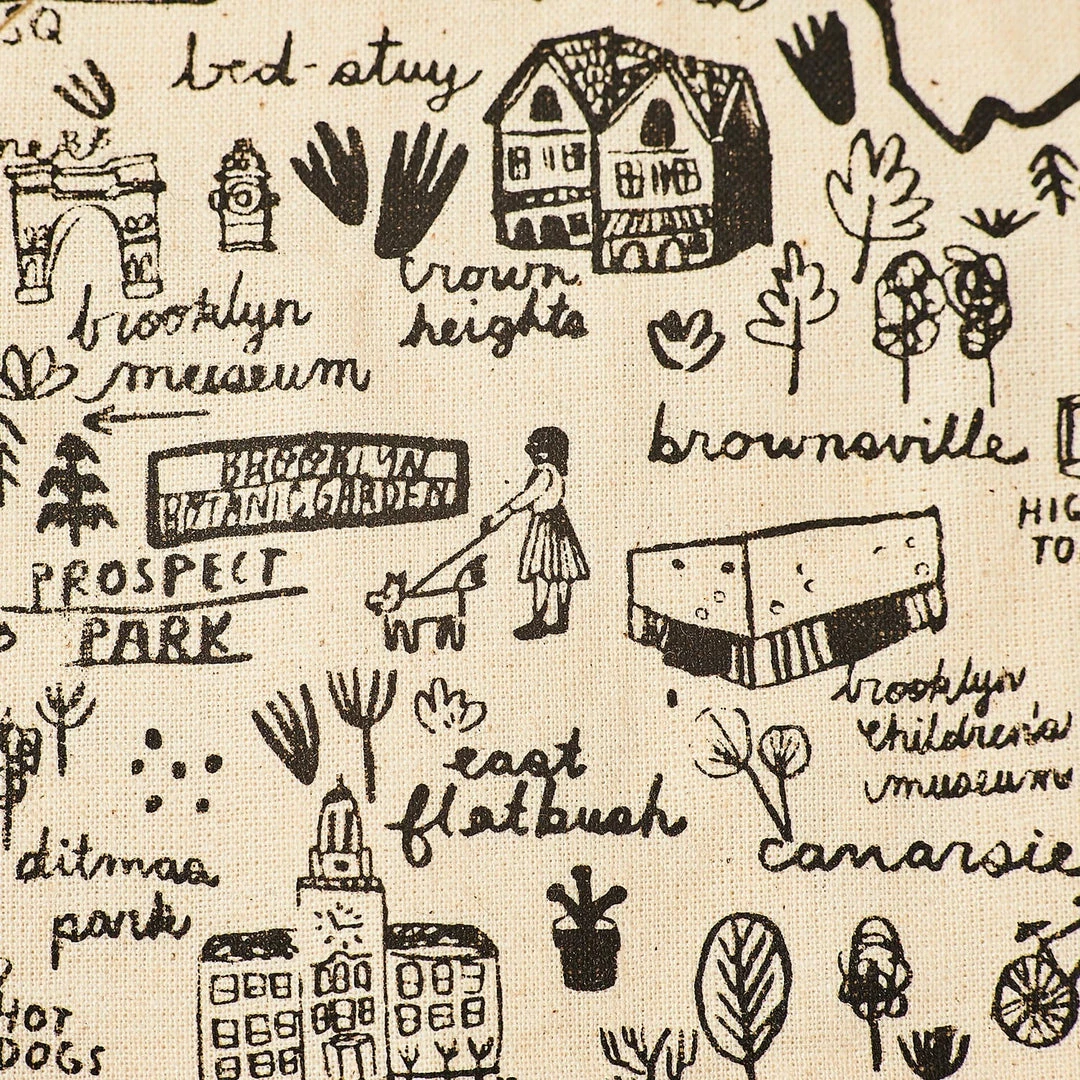 SQ
bed-stuy
crown
heights
brooklyn
museum
brownsville
BROOKLYN
BOTANIC GARDEN
PROSPECT
PARK
HIG
TO
brooklyn
children's
museum
east
flatbush
canarsie
ditmas
park
HOT
DOGS